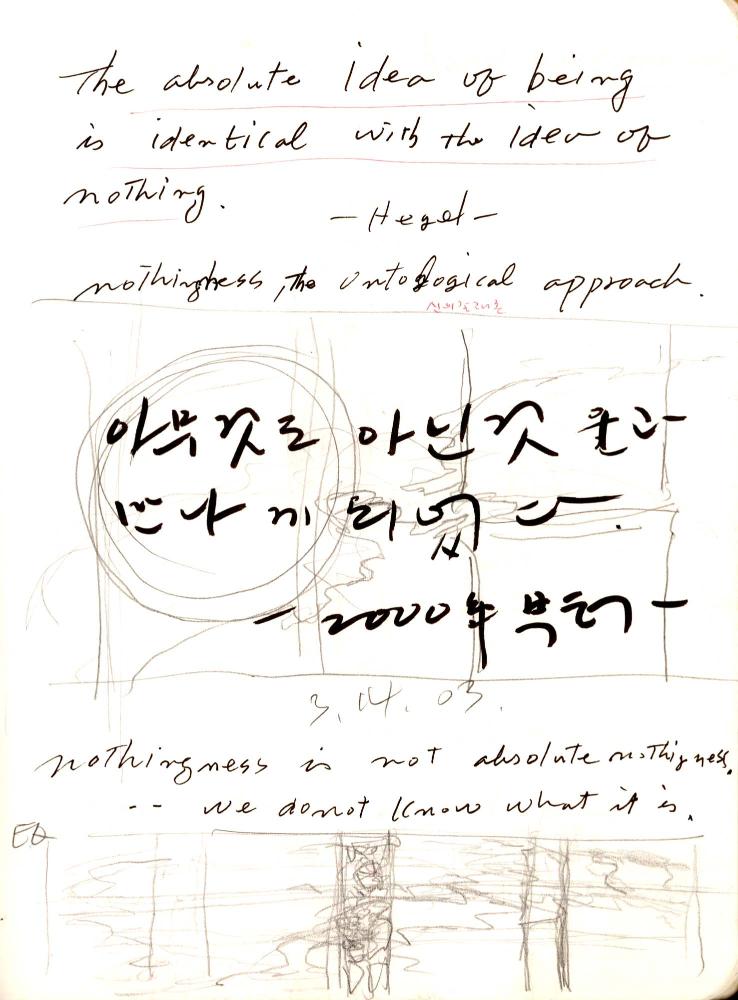 The absolute idea of being
is identical with the idea of
nothing.
- Hegel -
nothingness, the ontological approach.
아무것도 아닌것 들과
만나게 되었다.
- 2000年 부터 -
3. 14. 03.
nothingness is not absolute nothigness.
-- we donot know what it is.